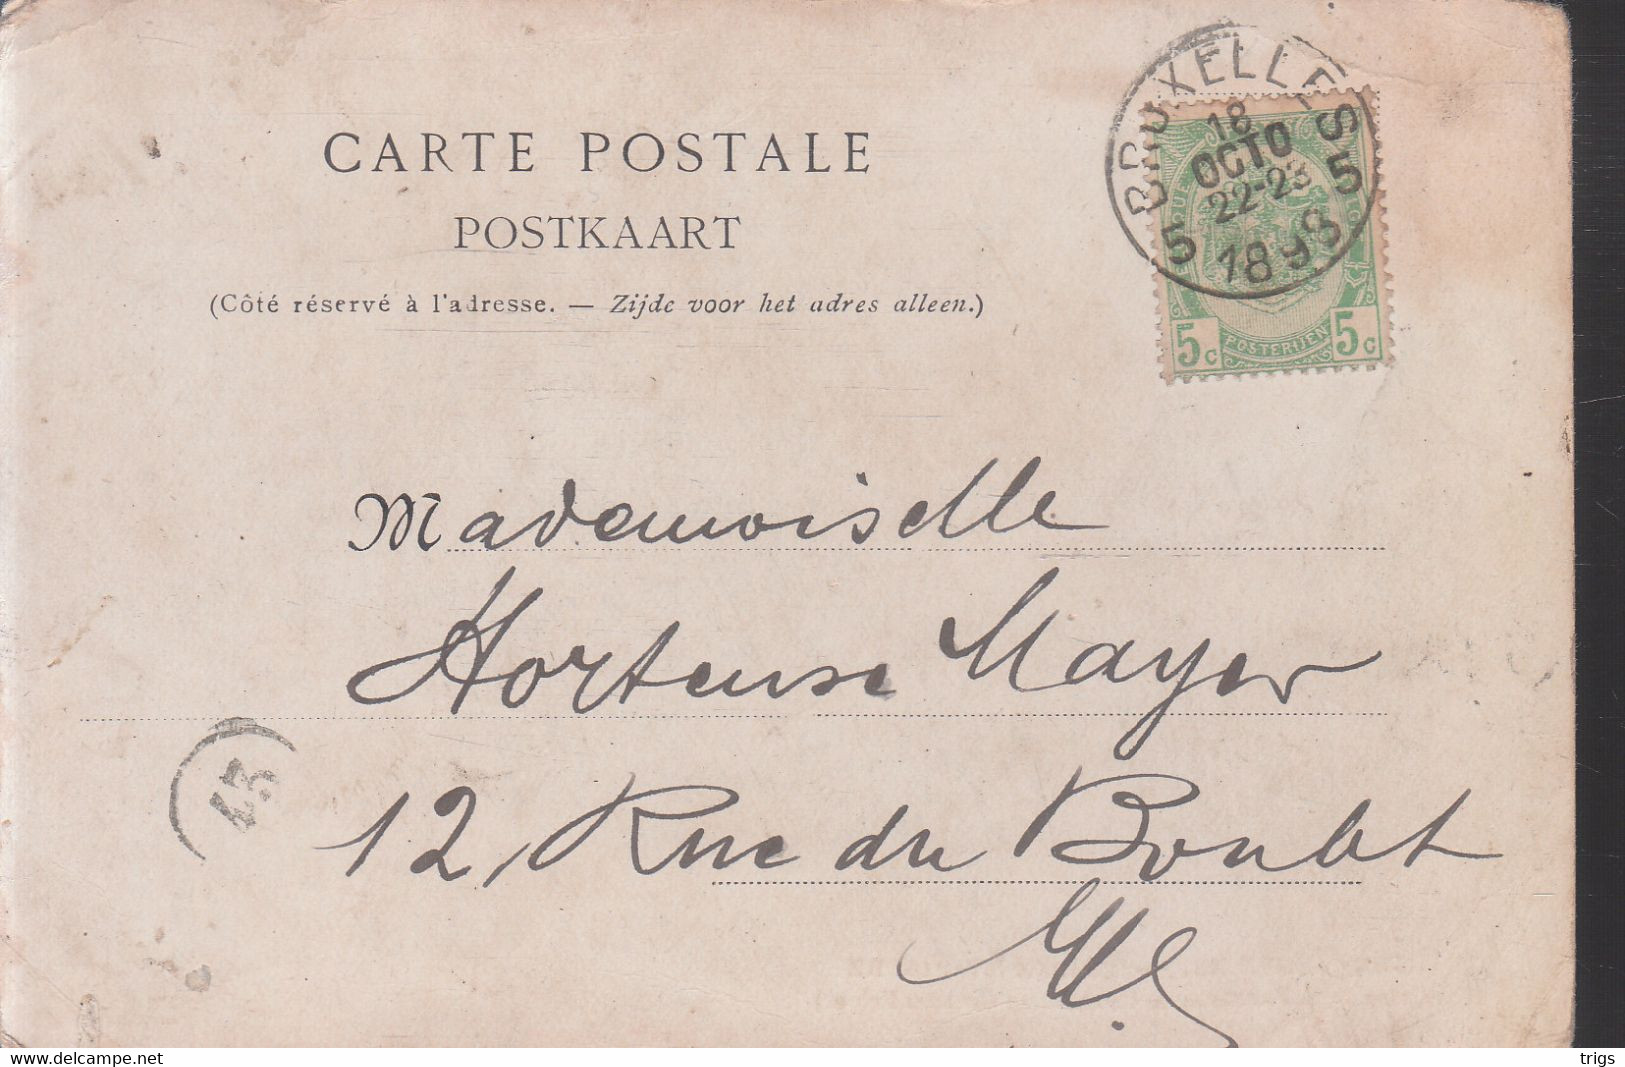 CARTE POSTALE
POSTKAART
(Côté réservé à l'adresse. — Zijde voor het adres alleen.)
BRUXELLES
18
OCTO
22-23
5 5
1898
5c POSTERIJEN 5c
Mademoiselle
Hortense Mayer
12, Rue du Boubt
trigs
https://www.delcampe.net